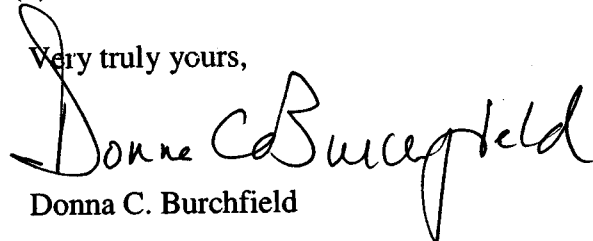 Very truly yours,
Donna C Burchfield
Donna C. Burchfield